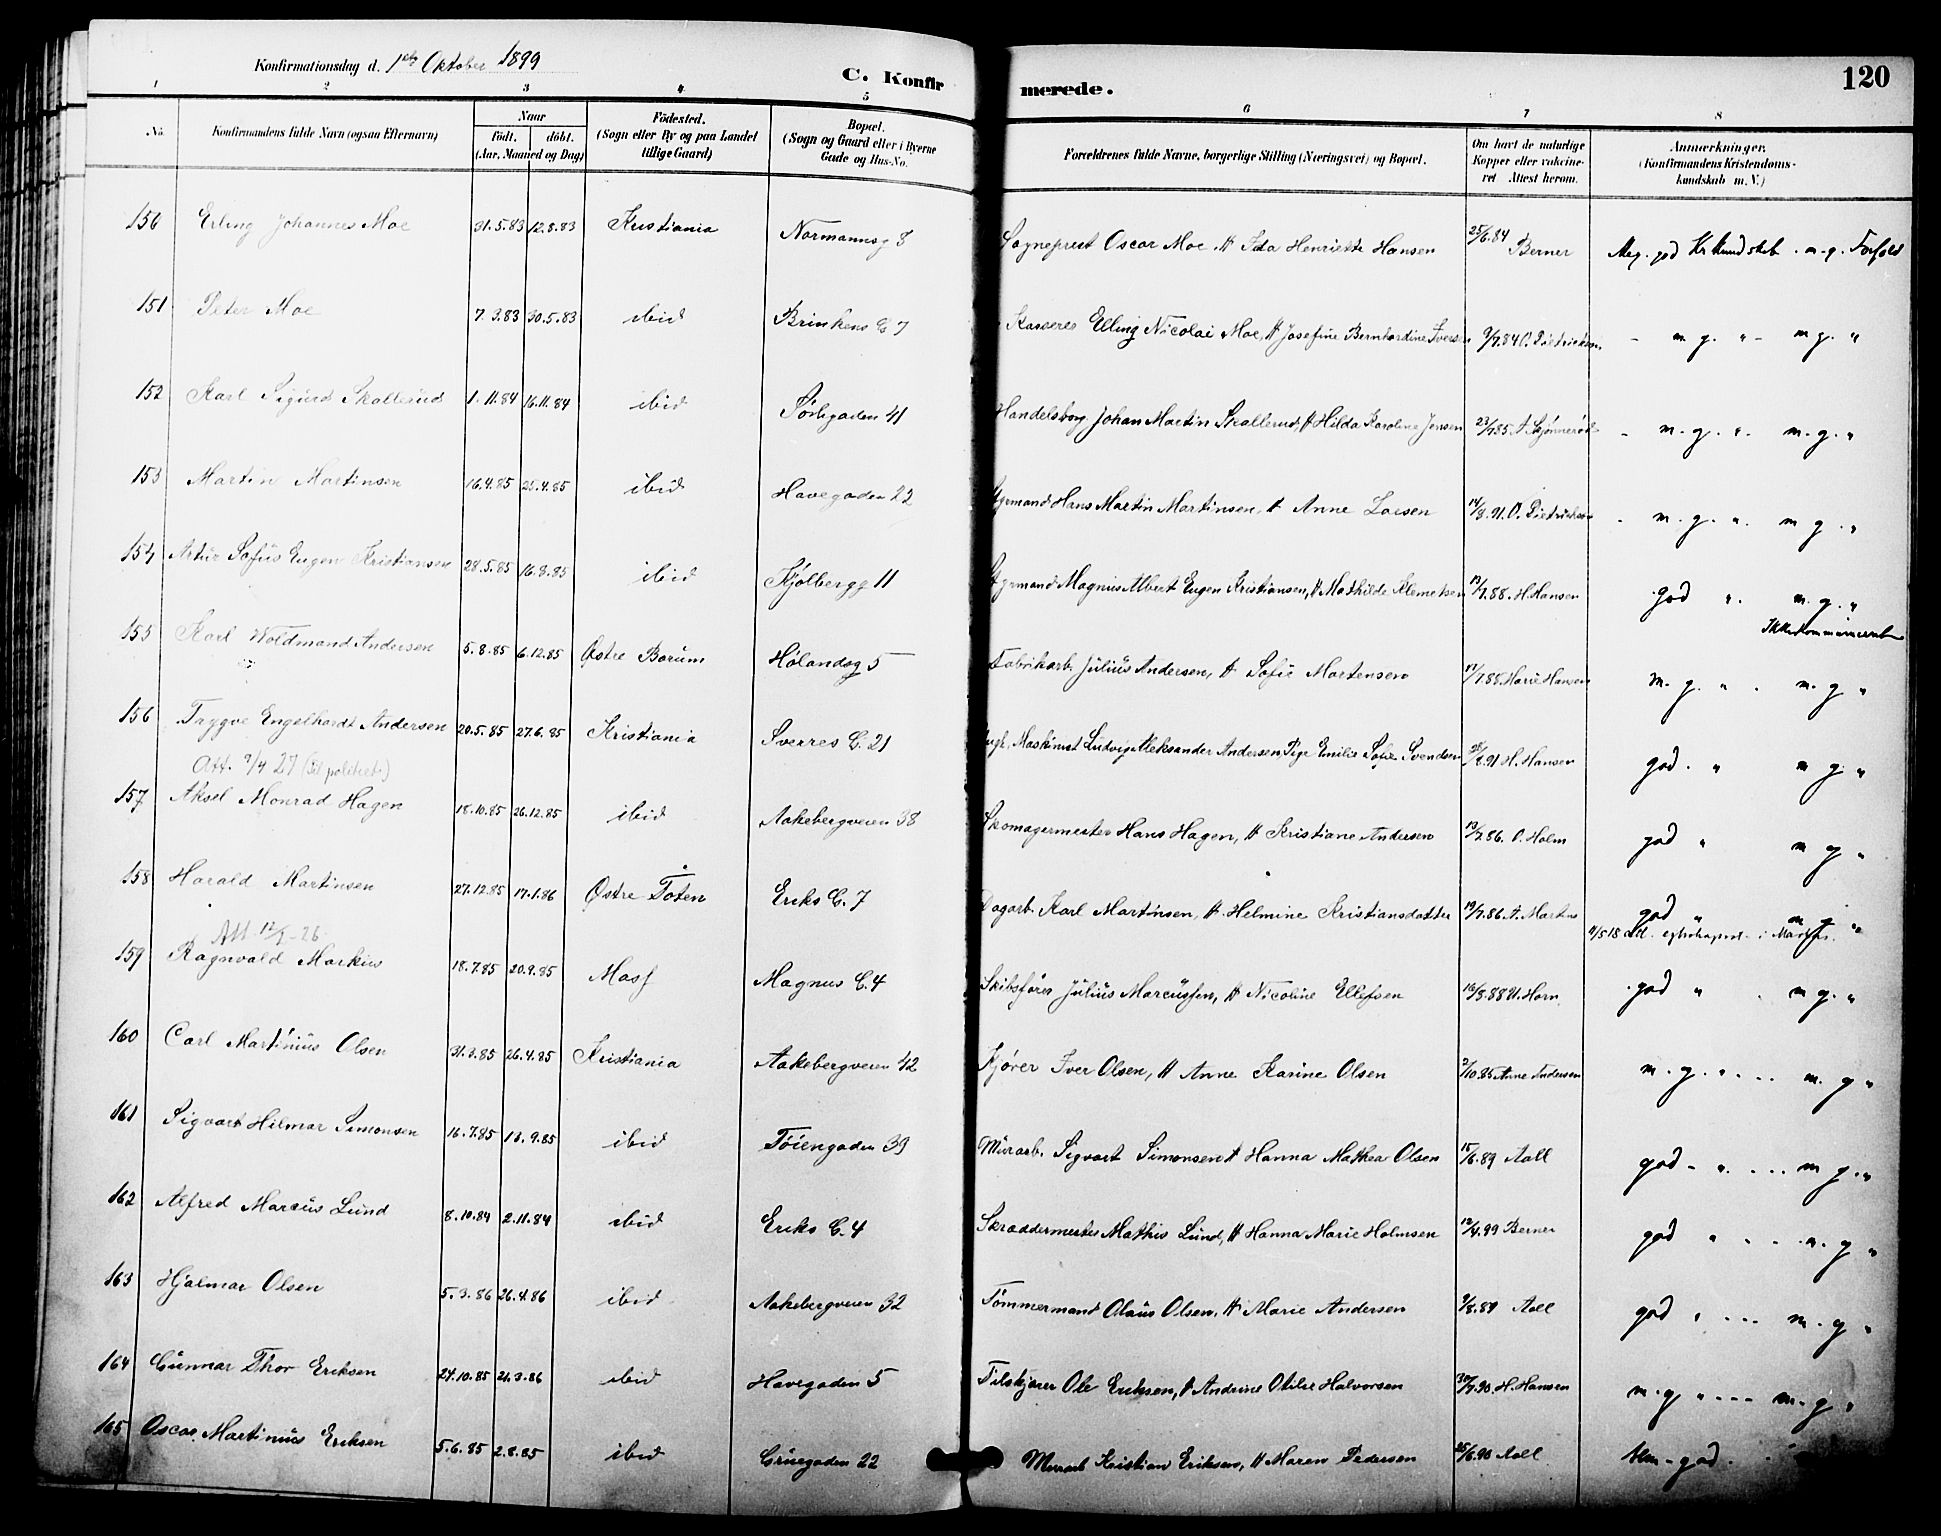 Konfirmationsdag d. 1ste Oktober 1899
C. Konfirmerede.
120
1 2 3 4 5 6 7 8
No. Konfirmandens fulde Navn (ogsaa Efternavn) Naar født. døbt. (Aar, Maaned og Dag) Fødested. (Sogn eller By og paa Landet tillige Gaard) Bopæl. (Sogn og Gaard eller i Byerne Gade og Hus-No. Forældrenes fulde Navne, borgerlige Stilling (Næringsvei) og Bopæl. Om havt de naturlige Kopper eller vakcineret Attest herom. Anmærkninger. (Konfirmandens Kristendomskundskab m. V.)
150 Erling Johannes Moe 31.5.83 12.8.83 Kristiania Normannsg 8 Sogneprest Oscar Moe, H Ida Henriette Hansen 25/6.84 Berner Meg. god Kr kundskab. m.g. Forhold
151 Peter Moe 7.3.83 30.5.83 ibid Brinkens G 7 Kasserer Elling Nicolai Moe, H Josefine Bernhardine Iversen 9/7.84 O. Dietrichson - m.g. " - m g. "
152 Karl Sigurd Skallerud 1.11.84 16.11.84 ibid Sørligaden 41 Handelsborg. Johan Martin Skallerud, H Hilda Karoline Jensen 23/7.85 A. Skjønnerød - m.g. ". m.g. "
153 Martin Martinsen 16.4.85 25.4.85 ibid Havegaden 22 Styrmand Hans Martin Martinsen, H Anne Larsen 14/8.91 O. Dietrichson - m.g. ". m g. "
154 Artur Sofus Eugen Kristiansen 28.5.85 16.8.85 ibid Kjølbergg 11 Styrmand Magnus Albert Eugen Kristiansen, H Mathilde Klemetsen 13/7.88. H. Hansen god ". m.g. "
Ikke
155 Karl Woldmand Andersen 5.8.85 6.12.85 Østre Bærum Hølandsg 5 Fabrikarb. Julius Andersen, H Sofie Martensen 17/7.88. Marie Hansen m.g. ". m.g "
156 Trygve Engelhardt Andersen 20.5.85 27.6.85 Kristiania Sverres G. 21 Ugift Maskinist Ludvig Aleksander Andersen, Pige Emilie Sofie Svendsen 28/8.91 H. Hansen god. " m g. "
Att. 9/4 27 (til politiet)
157 Aksel Monrad Hagen 18.10.85 26.12.85 ibid Aakebergveien 38 Skomagermester Hans Hagen, H Kristiane Andersen 13/7.86. O. Holm god " m g "
158 Harald Martinsen 27.12.85 17.1.86 Østre Toten Eriks G. 7 Dagarb. Karl Martinsen, H. Helmine Kristiansdatter 19/7.86 A. Martens god " m g "
Att. 12/1-26
159 Ragnvald Markus 18.7.85 20.9.85 Moss Magnus G. 4 Skibsfører Julius Marcussen, H Nicoline Ellefsen 16/8.88 U. Horn. god " . m g. "
160 Carl Martinius Olsen 31.3.85 26.4.85 Kristiania Aakebergveien 42 Kjører Iver Olsen, H Anne Karine Olsen 2/10.85 Anne Andersen m.g. " ... m. g "
161 Sigvart Hilmar Simonsen 16.7.85 13.9.85 ibid Tøiengaden 39 Murarb. Sigvart Simonsen H Hanna Mathea Olsen 15/6.89 Aall god - " ... m g. "
162 Alfred Marcus Lund 8.10.84 2.11.84 ibid Eriks G. 4 Skræddermester Mathis Lund, H Hanna Marie Holmsen 12/4.99 Berner god " ... m.g "
163 Hjalmar Olsen 5.3.86 26.4.86 ibid Aakebergveien 32 Tømmermand Olaus Olsen, H Marie Andersen 9/8.89 Aall god " ... m.g "
164 Gunnar Thor Eriksen 24.10.85 21.3.86 ibid Havegaden 5 Filskjærer Ole Eriksen, H Andrine Otilie Halvorsen 30/7.90 H. Hansen m.g " ... m.g "
165 Oscar Martinius Eriksen 5.6.85 2.8.85 ibid Grüegaden 22 Murarb Kristian Eriksen, H Maren Pedersen 25/6.90 Aall god.